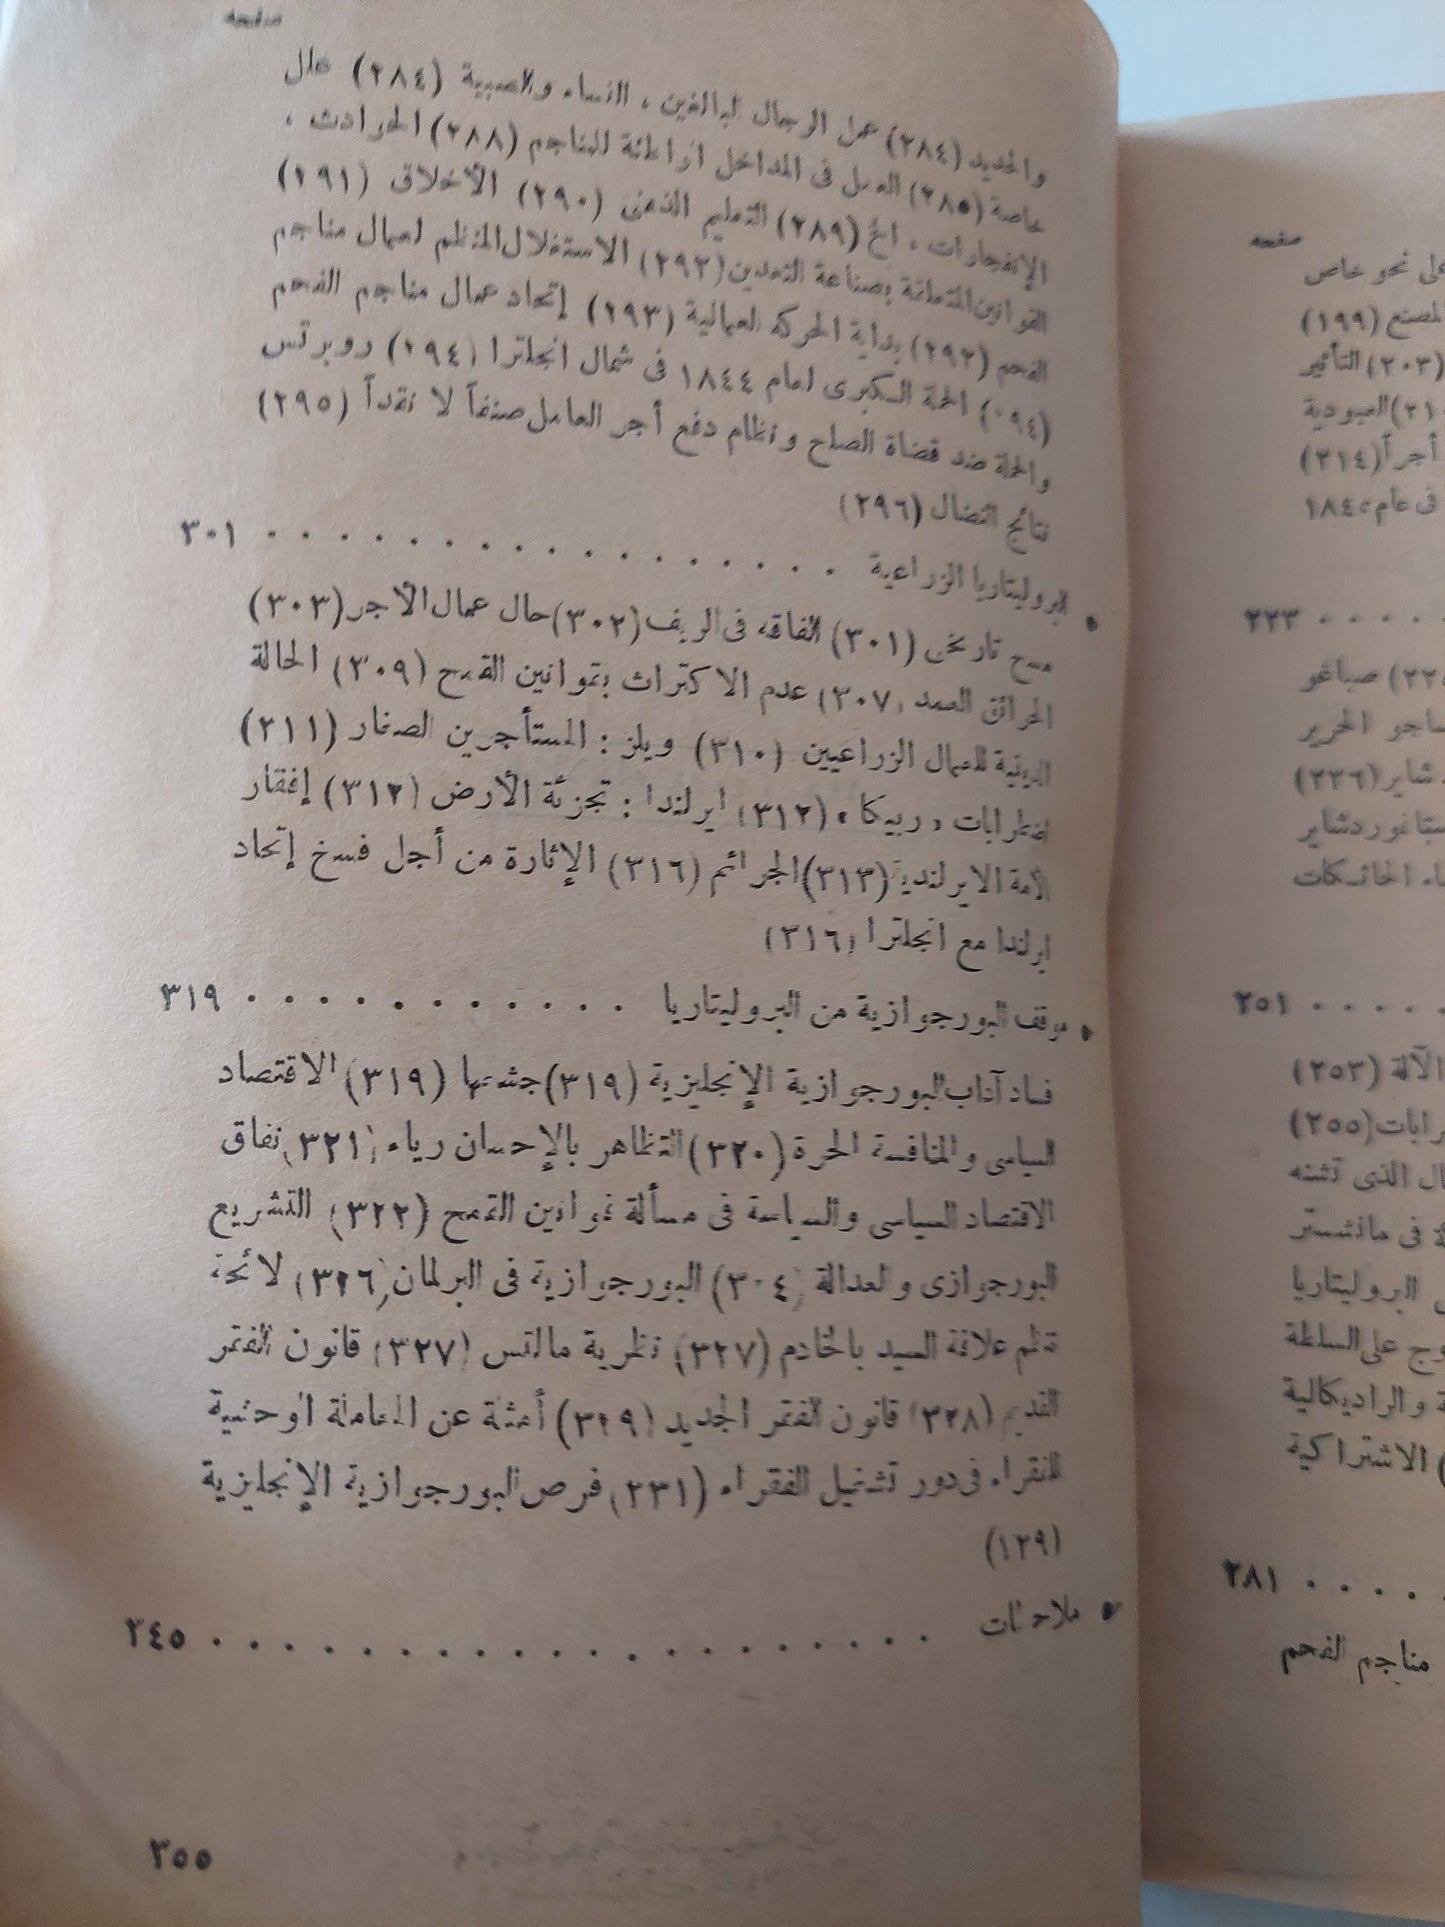 صفحه
والحديد (٢٨٤) عمل الرجال البالغين ، النساء والصبية (٢٨٤) علل
خاصة (٢٨٥) العمل فى المداخل الواطئة للمناجم (٢٨٨) الحوادث ،
الإنفجارات ، الخ (٢٨٩) التعليم الذهنى (٢٩٠) الأخلاق (٢٩١)
القوانين المتعلقة بصناعة التعدين (٢٩٢) الاستغلال المنظم لعمال مناجم
الفحم (٢٩٢) بداية الحركة العمالية (٢٩٣) إتحاد عمال مناجم الفحم
(٢٩٤) الحملة الكبرى لعام ١٨٤٤ فى شمال انجلترا (٢٩٤) روبرتس
والحملة ضد قضاة الصلح ونظام دفع أجر العامل صنفاً لا نقداً (٢٩٥)
نتائج النضال (٢٩٦)
• البروليتاريا الزراعية . . . . . . . . . . . . . . . . ٣٠١
مسح تاريخى (٣٠١) الفاقه فى الريف (٣٠٢) حال عمال الأجر (٣٠٣)
الحرائق العمد (٣٠٧) عدم الاكتراث بقوانين القمح (٣٠٩) الحالة
الدينية للعمال الزراعيين (٣١٠) ويلز : المستأجرين الصغار (٣١١)
اضطرابات « ربيكا » (٣١٢) ايرلندا : تجزئة الأرض (٣١٢) إفقار
الأمة الايرلندية (٣١٣) الجرائم (٣١٦) الإثارة من أجل فسخ إتحاد
ايرلندا مع انجلترا (٣١٦)
• موقف البورجوازية من البروليتاريا . . . . . . . . . . . ٣١٩
فساد آداب البورجوازية الإنجليزية (٣١٩) جشعها (٣١٩) الاقتصاد
السياسى والمنافسة الحرة (٣٢٠) التظاهر بالإحسان رياء (٣٢١) نفاق
الاقتصاد السياسى والسياسة فى مسألة قوانين القمح (٣٢٢) التشريع
البورجوازى والعدالة (٣٠٤) البورجوازية فى البرلمان (٣٢٦) لائحة
تنظم علاقة السيد بالخادم (٣٢٧) نظرية مالتس (٣٢٧) قانون الفقر
القديم (٣٢٨) قانون الفقر الجديد (٣٢٩) أمثلة عن المعاملة الوحشية
للفقراء فى دور تشغيل الفقراء (٢٣١) فرص البورجوازية الإنجليزية
(١٣٩)
• ملاحظات . . . . . . . . . . . . . . . . . . . . ٢٤٥
٣٥٥
صفحه
على نحو خاص
المصنع (١٩٩)
(٢٠٣) التأثير
العبودية
أجراً (٢١٤)
فى عام ١٨٤٥
. . . . ٢٢٣
صباغو
ناسجو الحرير
شاير (٢٣٦)
ستافوردشاير
الحائكات
. . . . ٢٥١
الآلة (٢٥٣)
(٢٥٥)
الذى تشنه
فى مانشستر
البروليتاريا
على السلطة
والراديكالية
الاشتراكية
. . . . ٢٨١
مناجم الفحم